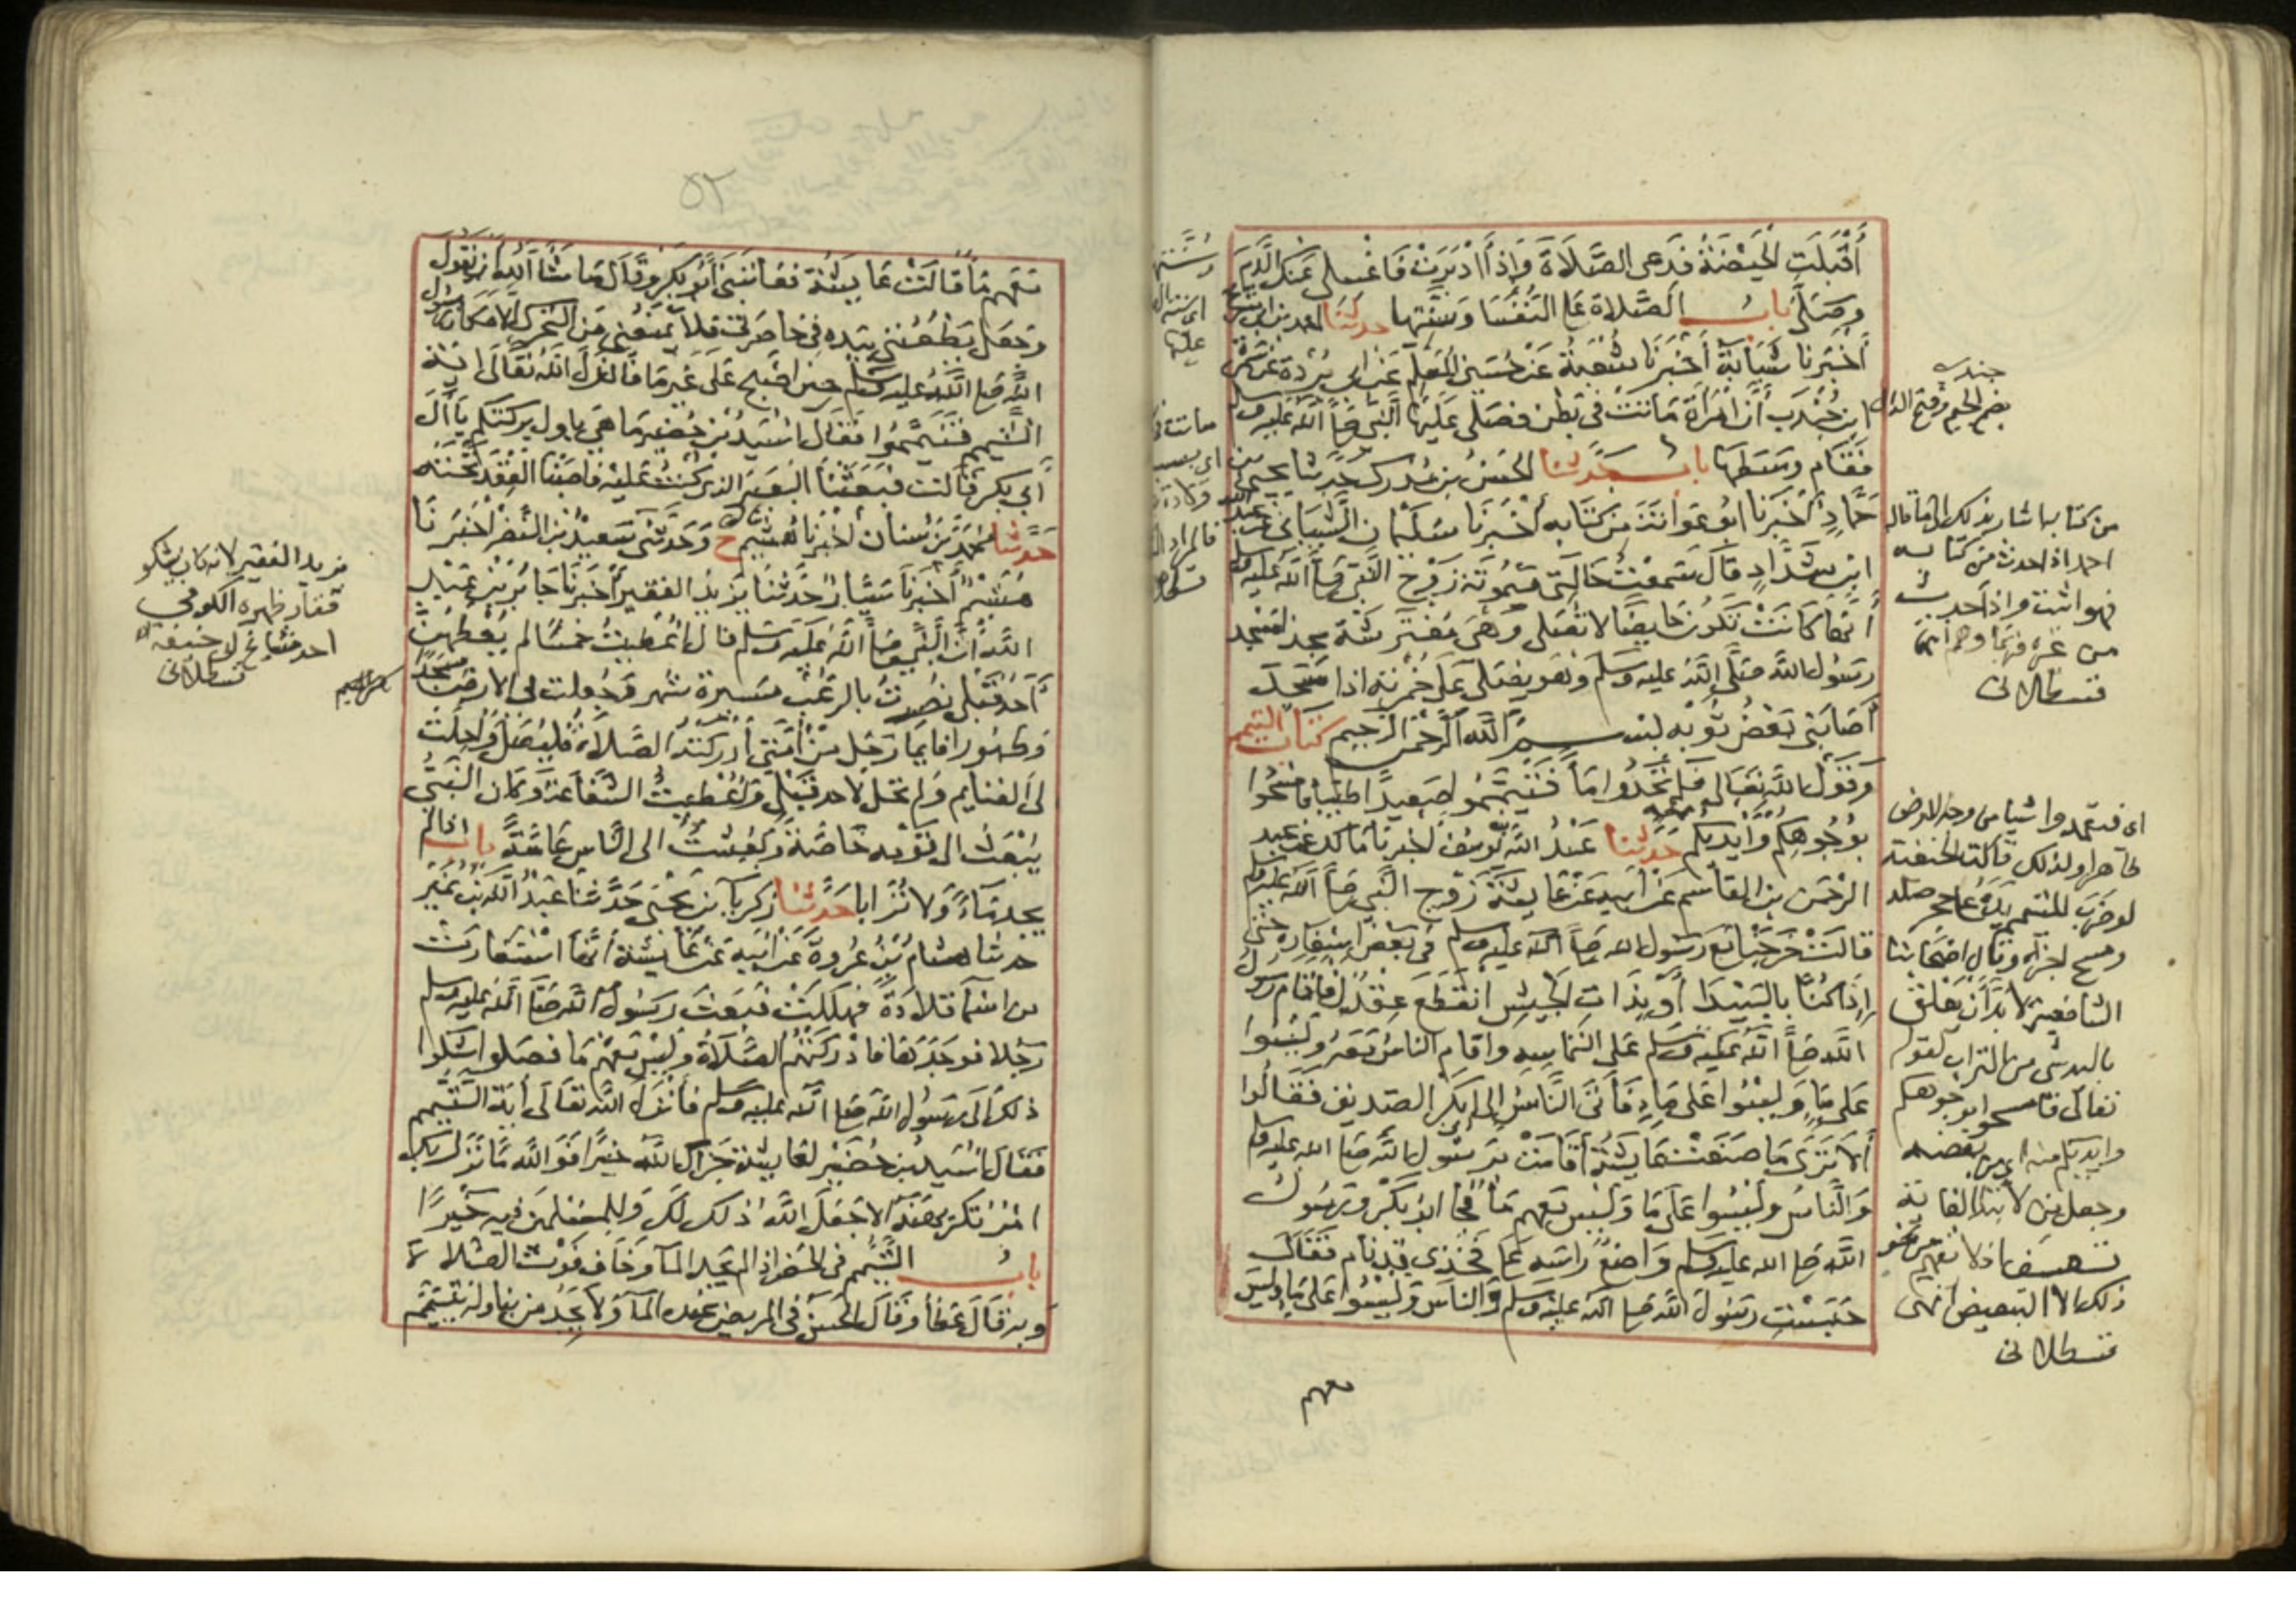 أَقْبَلَتِ الْحَيْضَةُ فَدَعِي الصَّلَاةَ وَإِذَا أَدْبَرَتْ فَاغْسِلِي عَنْكِ الدَّمَ
وصَلِّي باب الصَّلاة على النُّفَسَا وسُنَّتِها حدثنا احمد بن ابي سريج
أخْبَرنا شَبَابَةُ أخْبَرَنَا شُعْبَةُ عَنْ حُسَيْن المُعَلِّم عَن ابن بُرَيْدة عن سمرة
ابن جُنْدَب أنَّ امْرَأة مَاتَتْ في بَطْن فصَلَّى عَلَيْهَا النَّبي صلى الله عليه وسلم
فَقَام وَسَطَهَا باب حدثنا الحسَنُ بن مُدْرِك حدثنا يحيى بن
حَمَّادٍ أخْبَرَنا ابُو عَوَانَةَ مِن كِتَابِهِ أخْبَرَنَا سُلَيْمَان الشَّيْبَاني عن عبد الله
ابْن شَدَّادٍ قَالَ سَمِعْتُ خَالَتِي مَيْمُونَة زَوْج النَّبِي صلى الله عليه وسلم
أنَّهَا كَانَتْ تَكُون حَايِضًا لا تُصَلِّي وَهِيَ مُفْتَرِشَة بحذا مسجد
رَسُول الله صَلَّى اللهُ عليه وسلم وَهو يُصَلِّي عَلَى خُمْرَتِه اذا سَجَدَ
أصَابَنِي بَعْضُ ثَوْبِه بسم الله الرحمن الرحيم كتاب التيمم
وَقَوْلُ الله تَعَالى فَلَمْ تَجِدُوا مَاً فَتَيَمَّمُوا صَعِيدًا طَيِّبًا فامْسَحُوا
بوُجُوهِكُم وَأيْدِيكُم منه حدثنا عَبْدُ الله بن يُوسُف اخبرنا مَالك عن عبد
الرَّحْمَن بن القَاسِم عَن أبِيه عَنْ عَايشَة زَوْج النَّبِي صلى الله عليه وسلم
قالَتْ خَرَجْنَا مع رَسُول الله صلى الله عليه وسلم في بَعْض اسْفَارِه حتى
إذَا كُنَّا بالبَيْدَا أَوْ بِذَاتِ الْجَيْشِ انْقَطَعَ عِقْدٌ لِي فأقَام رسول
الله صلى الله عليه وسلم على الْتِمَاسِهِ واقَام النَّاسُ مَعَهُ ولَيْسُوا
عَلَى مَاٍ وَلَيْسُوا عَلَى مَاٍ فَأتَى النَّاسُ إلى ابي بَكْر الصديق فَقَالُوا
ألَا تَرَى مَا صَنَعَتْ عَايشَةُ أقَامَتْ بِرَسُول الله صلى الله عليه وسلم
وَالنَّاسُ ولَيْسُوا عَلَى مَا وَلَيْسَ مَعَهُم مَاً فجا ابُو بَكْر ورَسُول
الله صلى الله عليه وسلم وَاضِعٌ رَاسَه على فَخْذِي قد نام فَقَالَ
حَبَسْتِ رَسُولَ الله صلى الله عليه وسلم وَالنَّاسَ وَلَيْسُوا عَلَى مَاٍ ولَيْسَ
معهم
جندب
بضم الجيم وفتح الدال
من كتابه اشار بذلك الى ما قاله
احمد اذا حدث من كتابه
فهو اثبت واذا حدث
من غيره فربما وهم
قسطلاني
اى فتعمدوا شيا من وجه الارض
طاهرا ولذلك قالت الحنفية
لو ضرب المتيمم يده على حجر صلد
ومسح اجزاه وقال اصحابنا
الشافعية لا بد ان يعلق
باليد شى من التراب لقوله
تعالى فامسحوا بوجوهكم
وايديكم منه اى من بعضه
وجعل من لابتدا الغاية
تعسف اذ لا يفهم من نحو
ذلك الا التبعيض انتهى
قسطلاني
٥٢
مَعَهُم مَاً قَالَتْ عَايشَة فعَاتَبَنِي أبُو بَكْر وقَالَ مَا شَا الله أن يَقُولَ
وَجَعَل يَطْعُنُنِي بيَده في خَاصِرَتي فَلَا يَمْنَعُنِي من التَّحَرُّك الا مَكَان رسول
الله صلى الله عليه وسلم حِين أصْبَح عَلَى غَيْر مَا فَانْزَلَ الله تَعَالَى آيَة
التَّيَمُّم فَتَيَمَّمُوا فقَالَ اسَيْدُ بْن حُضَيْر مَا هِيَ باول بركتكم يا آلَ
أبي بكر قَالت فبَعَثْنَا البَعِيرَ الذي كُنْتُ عَلَيْه فاصَبْنَا العِقْدَ تَحْتَهُ
حَدَّثَنَا محمد بن سِنَان أخْبَرَنَا هُشَيْم ح وَحَدَّثَنِي سَعِيدُ بْن النَّضْر اخْبَرَنَا
هُشَيْمٌ أخْبَرَنَا سَيَّار حَدَّثَنَا يَزِيد الفَقِيرُ أخْبَرَنَا جَابِرُ بْن عَبْد
الله أنَّ النَّبِي صلى الله عَلَيْه وسلم قَالَ أُعْطِيتُ خمْسًا لم يُعْطَهُنَّ
أحَدٌ قَبْلِي نُصِرْتُ بالرُّعْب مَسِيرَة شَهْر وَجُعِلت لي الارض مسجدا
وطَهُورا فايمَا رَجُل مِنْ أمَّتِي أدْرَكَتْه الصَّلاةُ فَليُصَلِّ وَأحِلَّت
لي الغنَايم وَلم تحل لاحد قَبْلِي وَأُعْطِيتُ الشَّفَاعَة وَكَان النَّبِيُّ
يُبْعَث الى قَوْمِه خَاصَّةً وَبُعِثْتُ الى النَّاس عَامَّةً باب اذا لم
يجد مَاءً وَلَا تُرَابا حَدَّثَنَا زكريا بن يَحْيَى حَدَّثَنَا عَبْدُ الله بْن نُمَيْر
حدثنا هشَام بْنُ عُرْوةَ عَن أبِيه عَنْ عَايشَة أنَّهَا اسْتَعَارَتْ
من اسْمَا قِلَادَةً فهَلَكَتْ فَبَعَثَ رَسُولُ الله صلى الله عليه وسلم
رَجُلا فوَجَدَهَا فادْرَكَتْهُمُ الصَّلَاةُ ولَيْسَ مَعَهُمْ مَا فصَلوا فشكوا
ذَلِك الى رَسُول الله صلى الله عليه وسلم فأنْزَلَ الله تعَالَى أيَة التَّيَمُّم
فقَالَ اسَيْد بن حُضَيْر لعَايشَة جَزَاك الله خَيْرًا فَوَ الله مَا نَزَل بِك
امْرٌ تَكْرَهِينَه إلا جَعَلَ الله ذَلِك لَك وَلِلمُسْلِمِينَ فيه خَيْرًا
باب التَّيَمُّم في الحضر اذا لم يجد الماَ وخَاف فَوْت الصَّلاة
وَبه قَالَ عَطَا وَقَالَ الحَسَن في المريض عنده الماَ وَلا يَجِدُ من يناوله يَتَيَمَّم
يزيد الفقير لانه كان يشكو
فقار ظهره الكوفي
احد مشايخ ابي حنيفة
قسطلاني